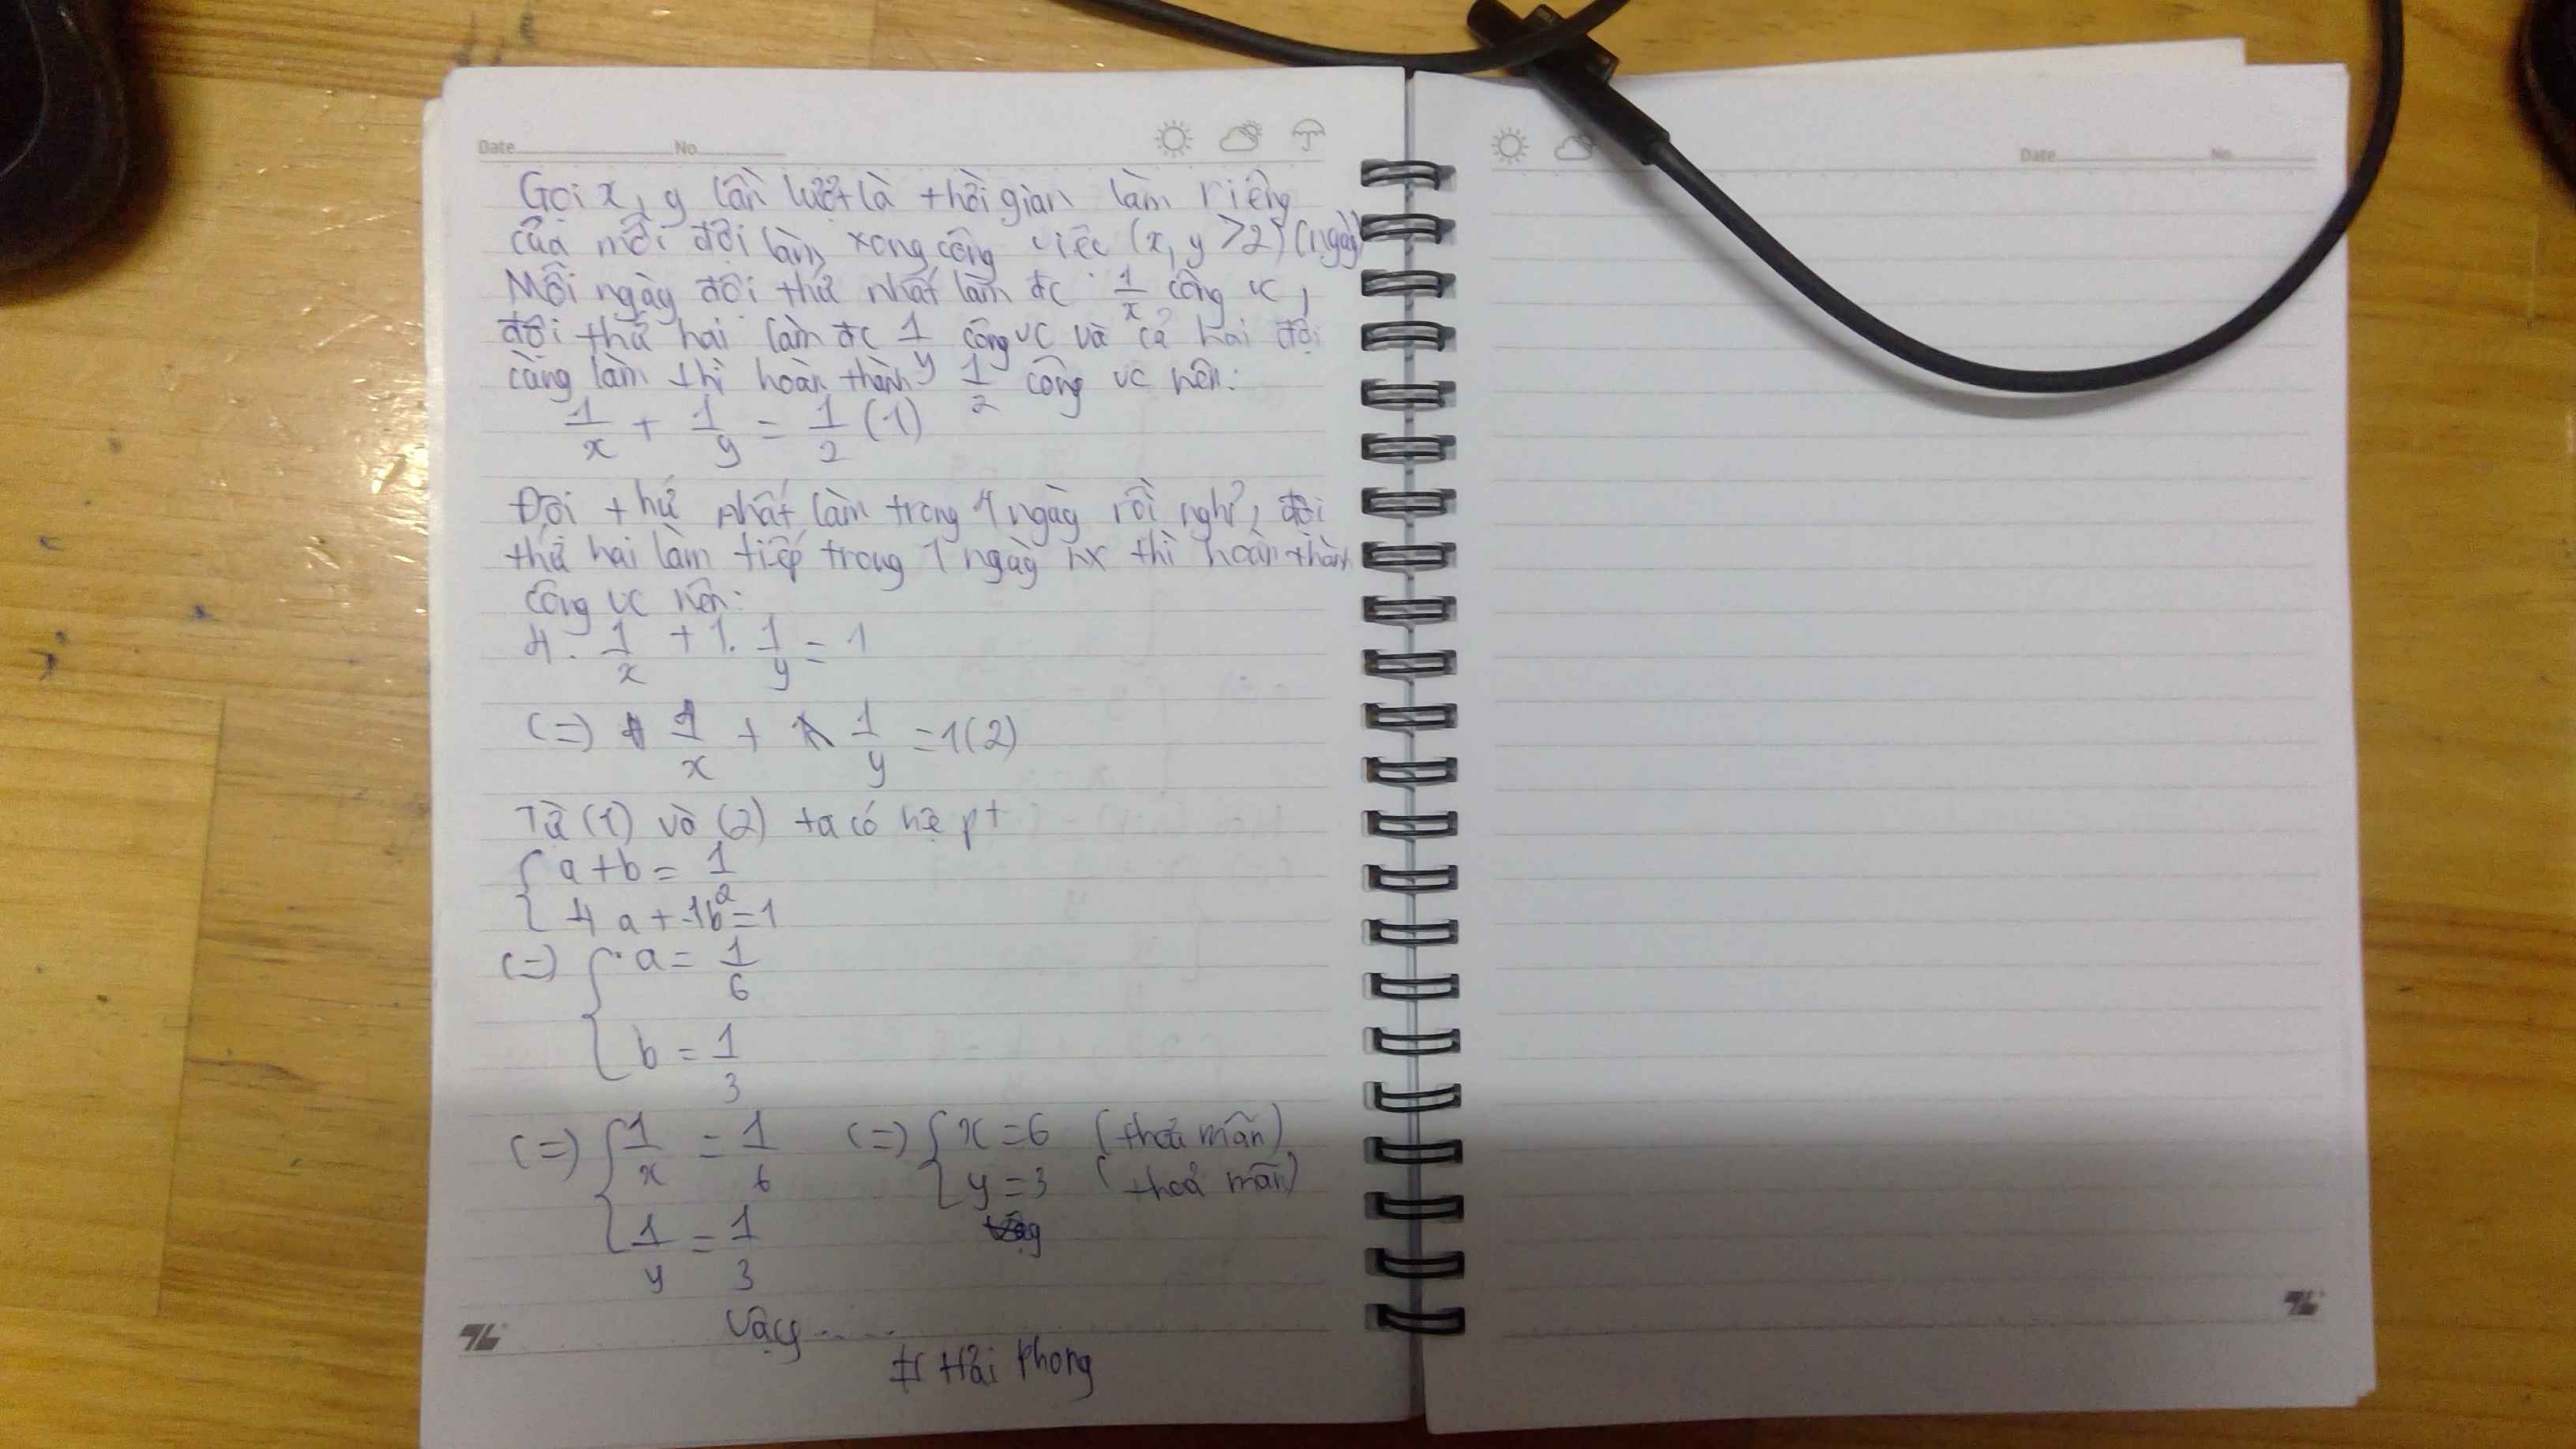 Date No
Gọi x, y lần lượt là thời gian làm riêng
của mỗi đội làm xong công việc (x, y > 2) (ngày)
Mỗi ngày đội thứ nhất làm đc 1/x công vc,
đội thứ hai làm đc 1/y công vc và cả hai đội
cùng làm thì hoàn thành 1/2 công vc nên:
1/x + 1/y = 1/2 (1)
Đội thứ nhất làm trong 4 ngày rồi nghỉ, đội
thứ hai làm tiếp trong 1 ngày nx thì hoàn thành
công vc nên:
4. 1/x + 1. 1/y = 1
(=) 4 1/x + 1 1/y = 1 (2)
Từ (1) và (2) ta có hệ pt
{ a + b = 1/2
{ 4a + 1b = 1
(=) { a = 1/6
{ b = 1/3
(=) { 1/x = 1/6 (=) { x = 6 (thoả mãn)
{ 1/y = 1/3 { y = 3 (thoả mãn)
Vậy .....
# Hải Phong
Date No